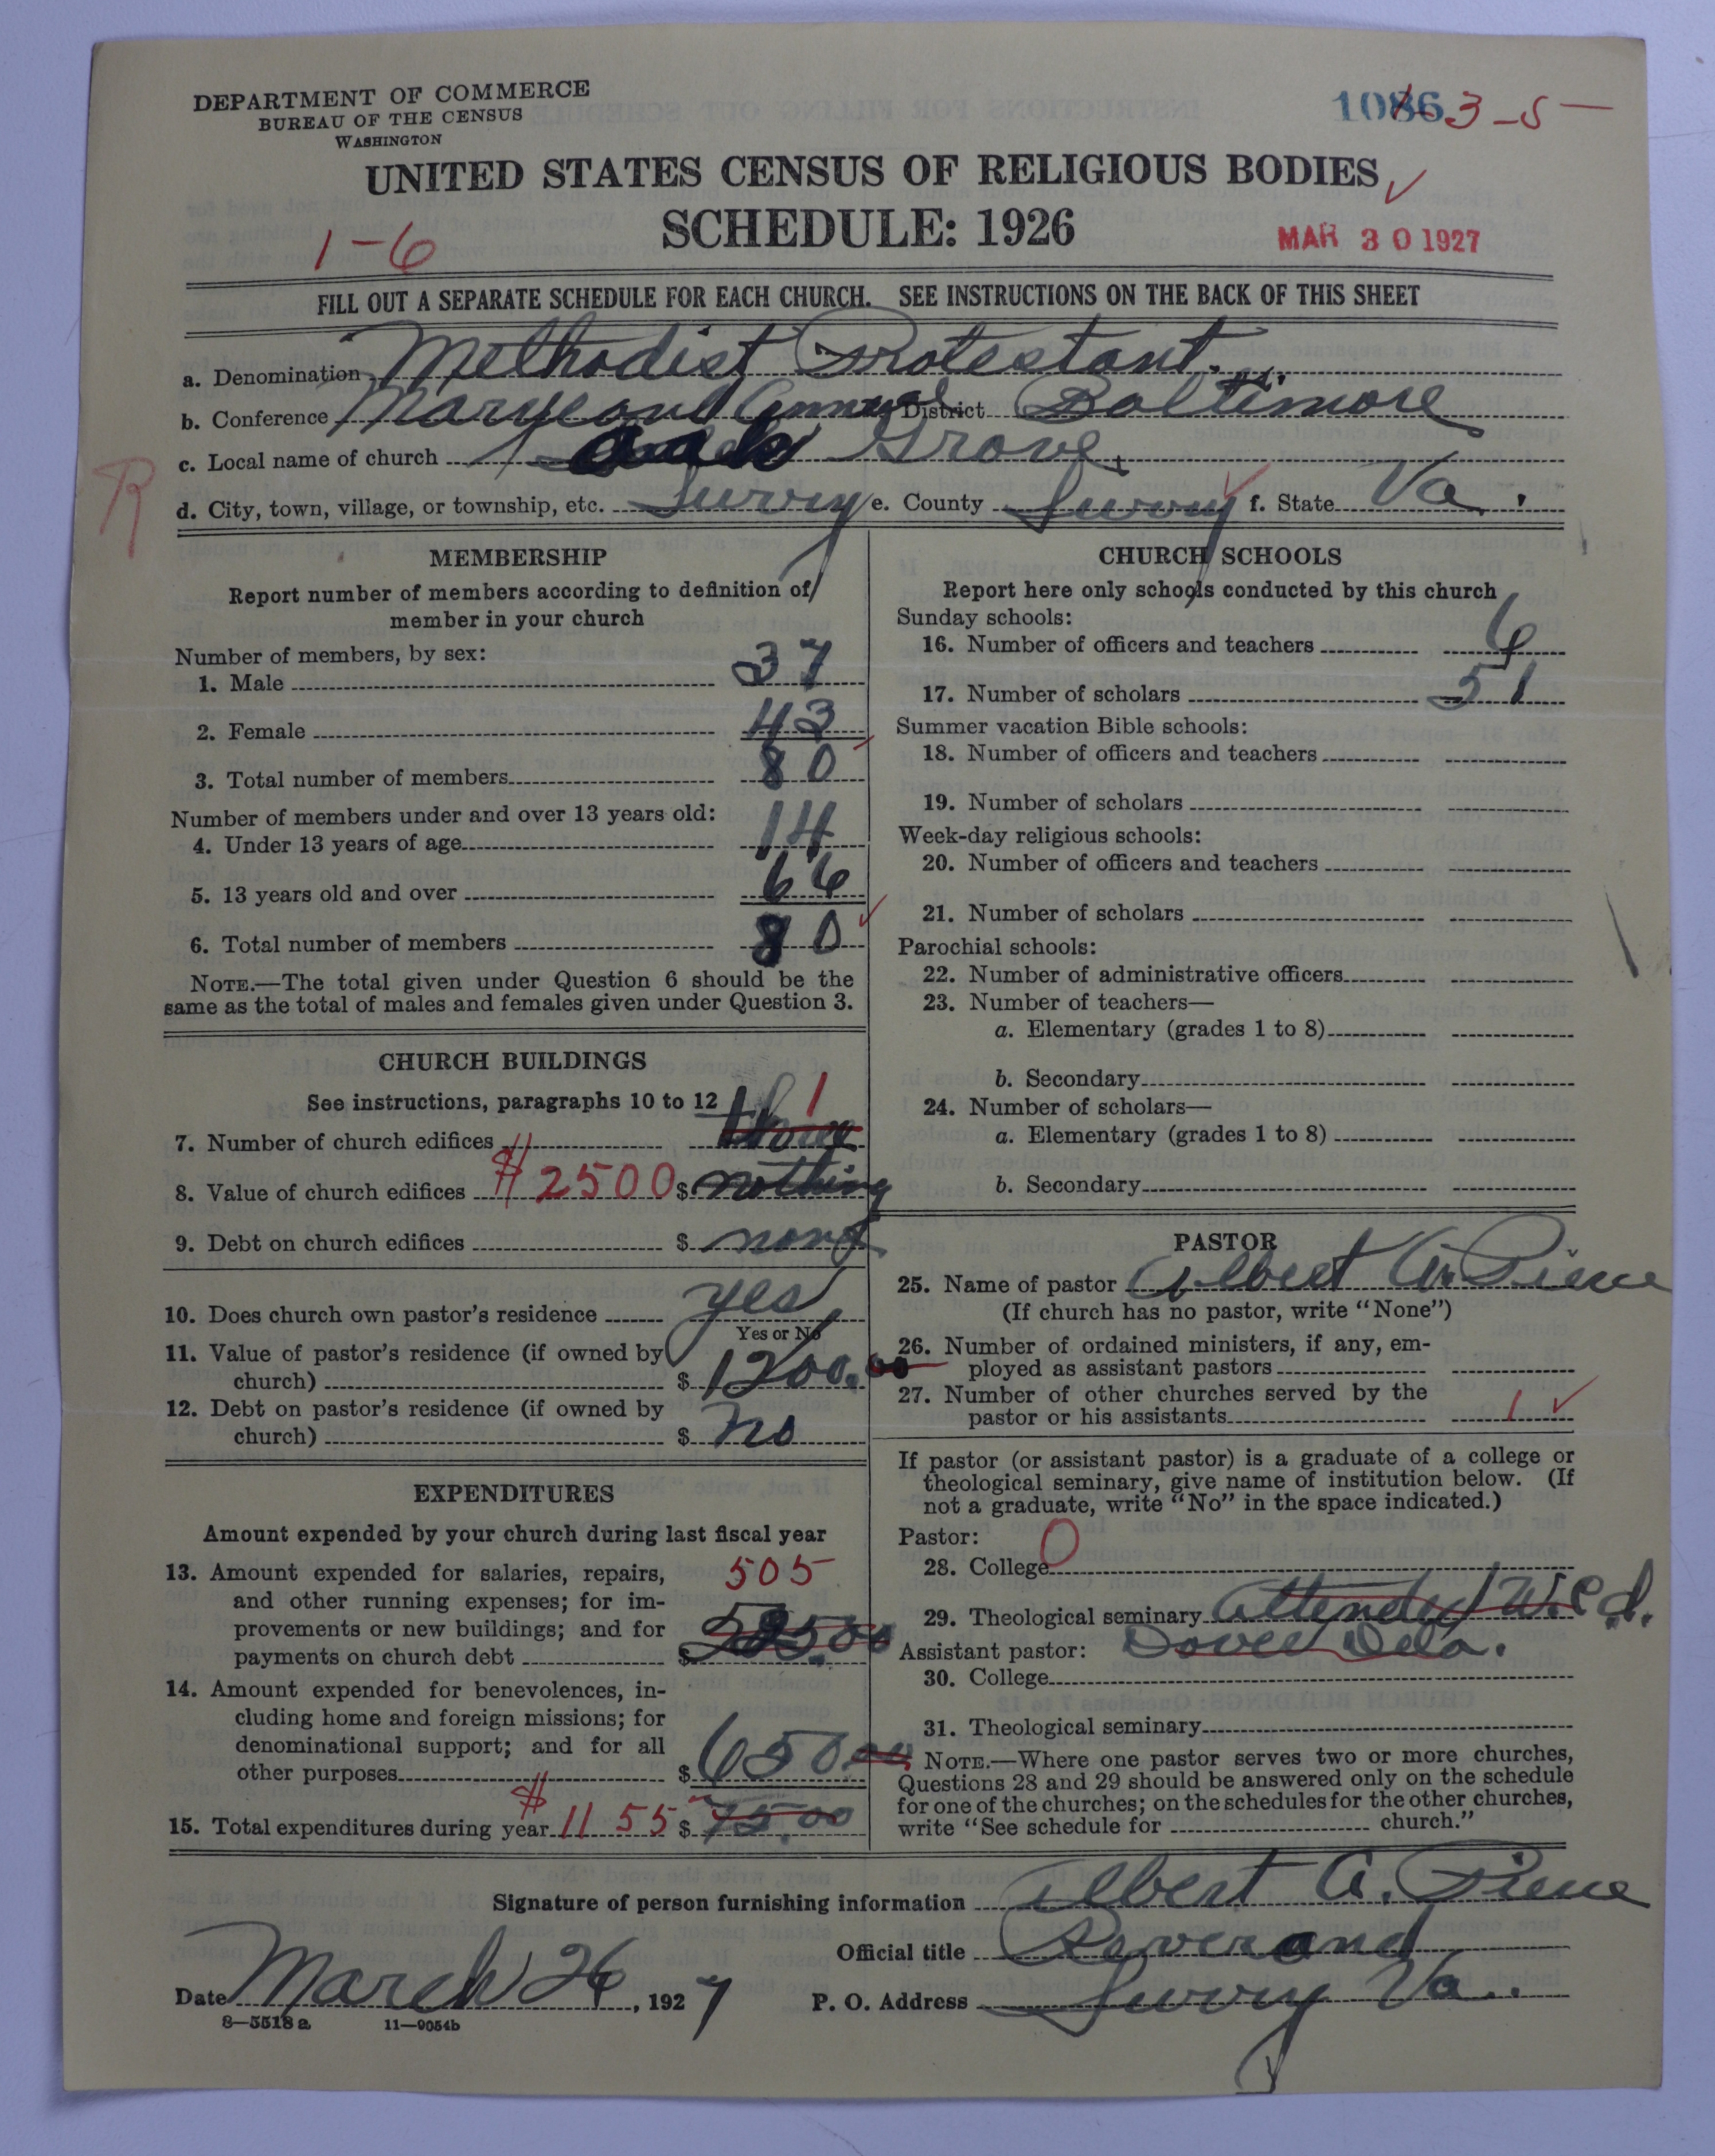 DEPARTMENT OF COMMERCE
BUREAU OF THE CENSUS
WASHINGTON
1086 3-5
UNITED STATES CENSUS OF RELIGIOUS BODIES
SCHEDULE: 1926
1-6
MAR 30 1927
FILL OUT A SEPARATE SCHEDULE FOR EACH CHURCH. SEE INSTRUCTIONS ON THE BACK OF THIS SHEET
a. Denominaation Methodist Protestant.
b. Conference Maryland Annual District Baltimore
c. Local name of church Oak Grove
R
d. City, town, village, or township, etc. Surry e. County Surry f. State Va.
MEMBERSHIP
Report number of members according to definition of
member in your church
Number of members, by sex:
1. Male 37
2. Female 43
3. Total number of members 80
Number of members under and over 13 years old:
4. Under 13 years of age 14
5. 13 years old and over 66
6. Total number of members 80
NOTE.—The total given under Question 6 should be the
same as the total of males and females given under Question 3.
CHURCH BUILDINGS
See instructions, paragraphs 10 to 12
7. Number of church edifices 1
8. Value of church edifices $2500 $ nothing
9. Debt on church edifices $ none
10. Does church own pastor's residence yes
Yes or No
11. Value of pastor's residence (if owned by
church) $ 1200.00
12. Debt on pastor's residence (if owned by
church) $ no
EXPENDITURES
Amount expended by your church during last fiscal year
13. Amount expended for salaries, repairs, 505
and other running expenses; for im-
provements or new buildings; and for
payments on church debt $
14. Amount expended for benevolences, in-
cluding home and foreign missions; for
denominational support; and for all
other purposes $ 650.00
15. Total expenditures during year $1155 $ 75.00
CHURCH SCHOOLS
Report here only schools conducted by this church
Sunday schools:
16. Number of officers and teachers 6
17. Number of scholars 51
Summer vacation Bible schools:
18. Number of officers and teachers
19. Number of scholars
Week-day religious schools:
20. Number of officers and teachers
21. Number of scholars
Parochial schools:
22. Number of administrative officers
23. Number of teachers—
a. Elementary (grades 1 to 8)
b. Secondary
24. Number of scholars—
a. Elementary (grades 1 to 8)
b. Secondary
PASTOR
25. Name of pastor Albert A.
(If church has no pastor, write "None")
26. Number of ordained ministers, if any, em-
ployed as assistant pastors
27. Number of other churches served by the
pastor or his assistants 1
If pastor (or assistant pastor) is a graduate of a college or
theological seminary, give name of institution below. (If
not a graduate, write "No" in the space indicated.)
Pastor:
28. College 0
29. Theological seminary Attended
Assistant pastor: Dover Dela.
30. College
31. Theological seminary
NOTE.—Where one pastor serves two or more churches,
Questions 28 and 29 should be answered only on the schedule
for one of the churches; on the schedules for the other churches,
write "See schedule for church."
Signature of person furnishing information Albert A.
Official title Reverand
Date March 26, 1927 P. O. Address Surry Va.
8—5518 a 11—9054b